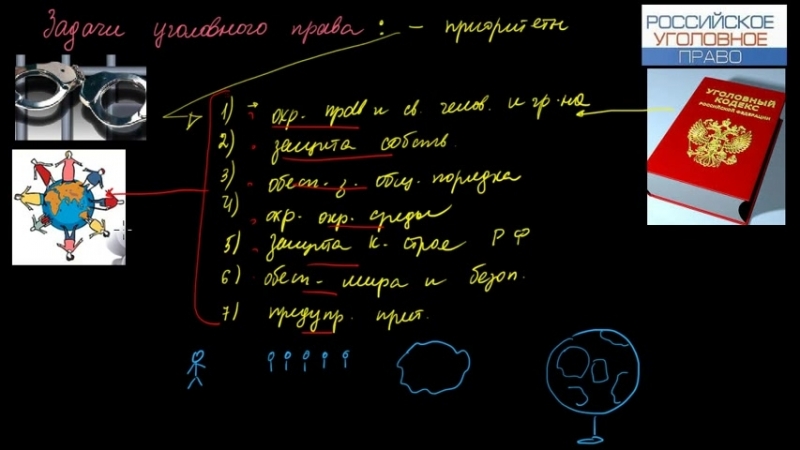 Задачи уголовного права : – приоритеты
РОССИЙСКОЕ
УГОЛОВНОЕ
ПРАВО
УГОЛОВНЫЙ
КОДЕКС
РОССИЙСКОЙ ФЕДЕРАЦИИ
1) охр. прав и св. челов. и гр-на
2) защита собств.
3) обесп. з. общ. порядка
4) охр. окр. среды
5) защита к. строе РФ
6) обесп. мира и безоп.
7) предупр. прест.